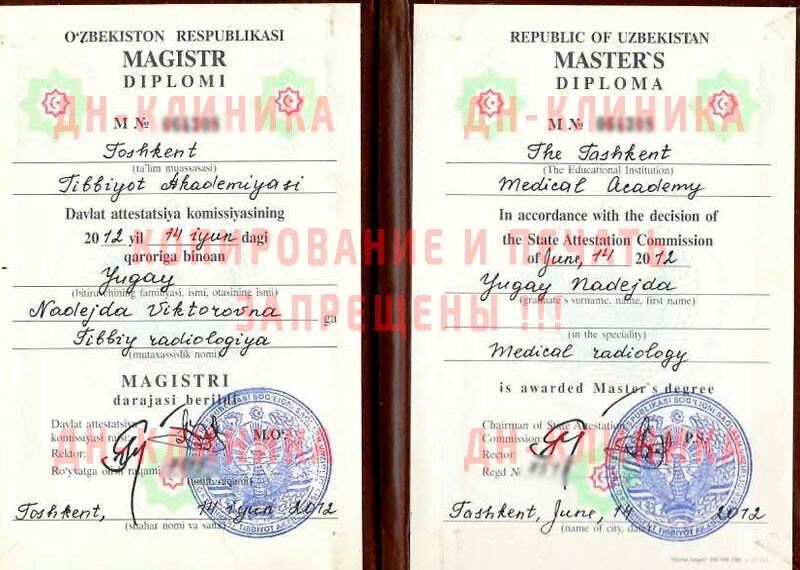 O‘ZBEKISTON RESPUBLIKASI
MAGISTR
DIPLOMI
M №
Toshkent
(ta'lim muassasasi)
Tibbiyot Akademiyasi
Davlat attestatsiya komissiyasining
2012 yil 14 iyun dagi
qaroriga binoan
Yugay
(bitiruvchining familyasi, ismi, otasining ismi)
Nadejda Viktorovna ga
Tibbiy radiologiya
(mutaxassislik nomi)
MAGISTRI
darajasi berildi
Davlat attestatsiya
komissiyasi raisi:
M.O‘.
Rektor:
Ro‘yxatga olish raqami
Toshkent, 14 iyun 2012
(shahar nomi va sana)
REPUBLIC OF UZBEKISTAN
MASTER`S
DIPLOMA
M №
The Tashkent
(The Educational Institution)
Medical Academy
In accordance with the decision of
the State Attestation Commission
of June, 14 2012
Yugay Nadejda
(graduate`s surname, name, first name)
(in the speciality)
Medical radiology
is awarded Master`s degree
Chairman of State Attestation
Commission:
P.S.
Rector:
Regd №
Tashkent, June, 14 2012
(name of city, date)
ДН-КЛИНИКА ДН-КЛИНИКА
КОПИРОВАНИЕ И ПЕЧАТЬ
ЗАПРЕЩЕНЫ !!!
ДН-КЛИНИКА ДН-КЛИНИКА